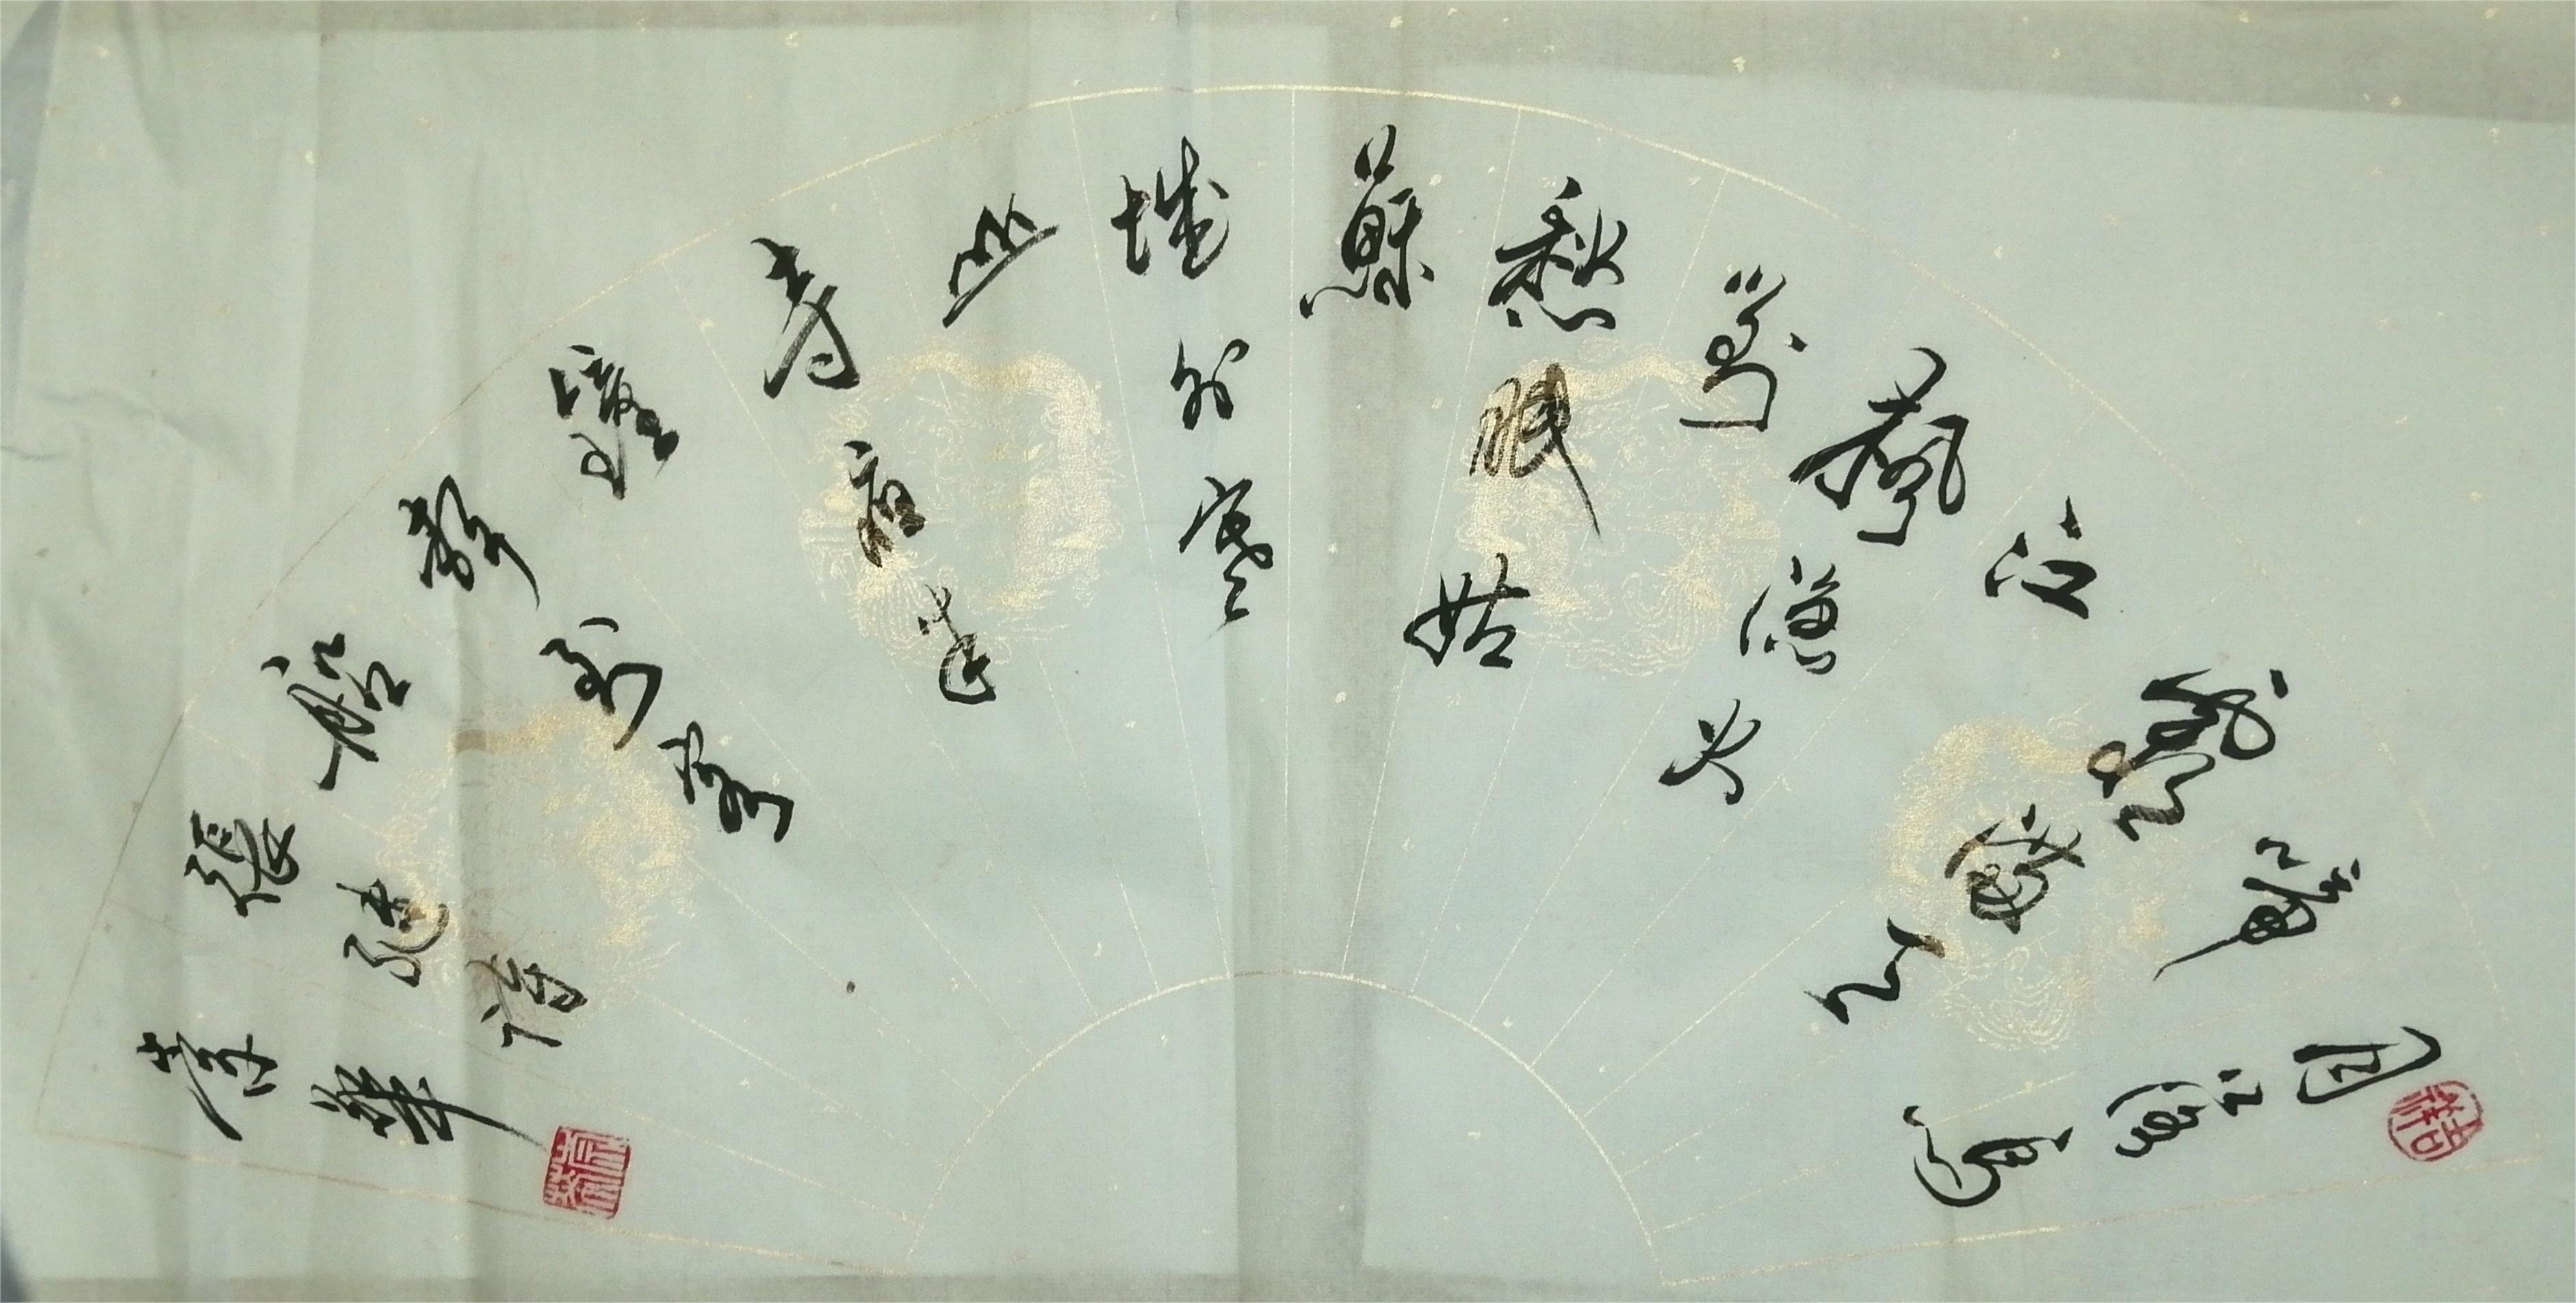 吉祥
月落烏
啼
霜滿天
江
楓漁火
對
愁眠姑
蘇
城外寒
山
寺夜半
鐘
聲到客
船
張繼詩
華